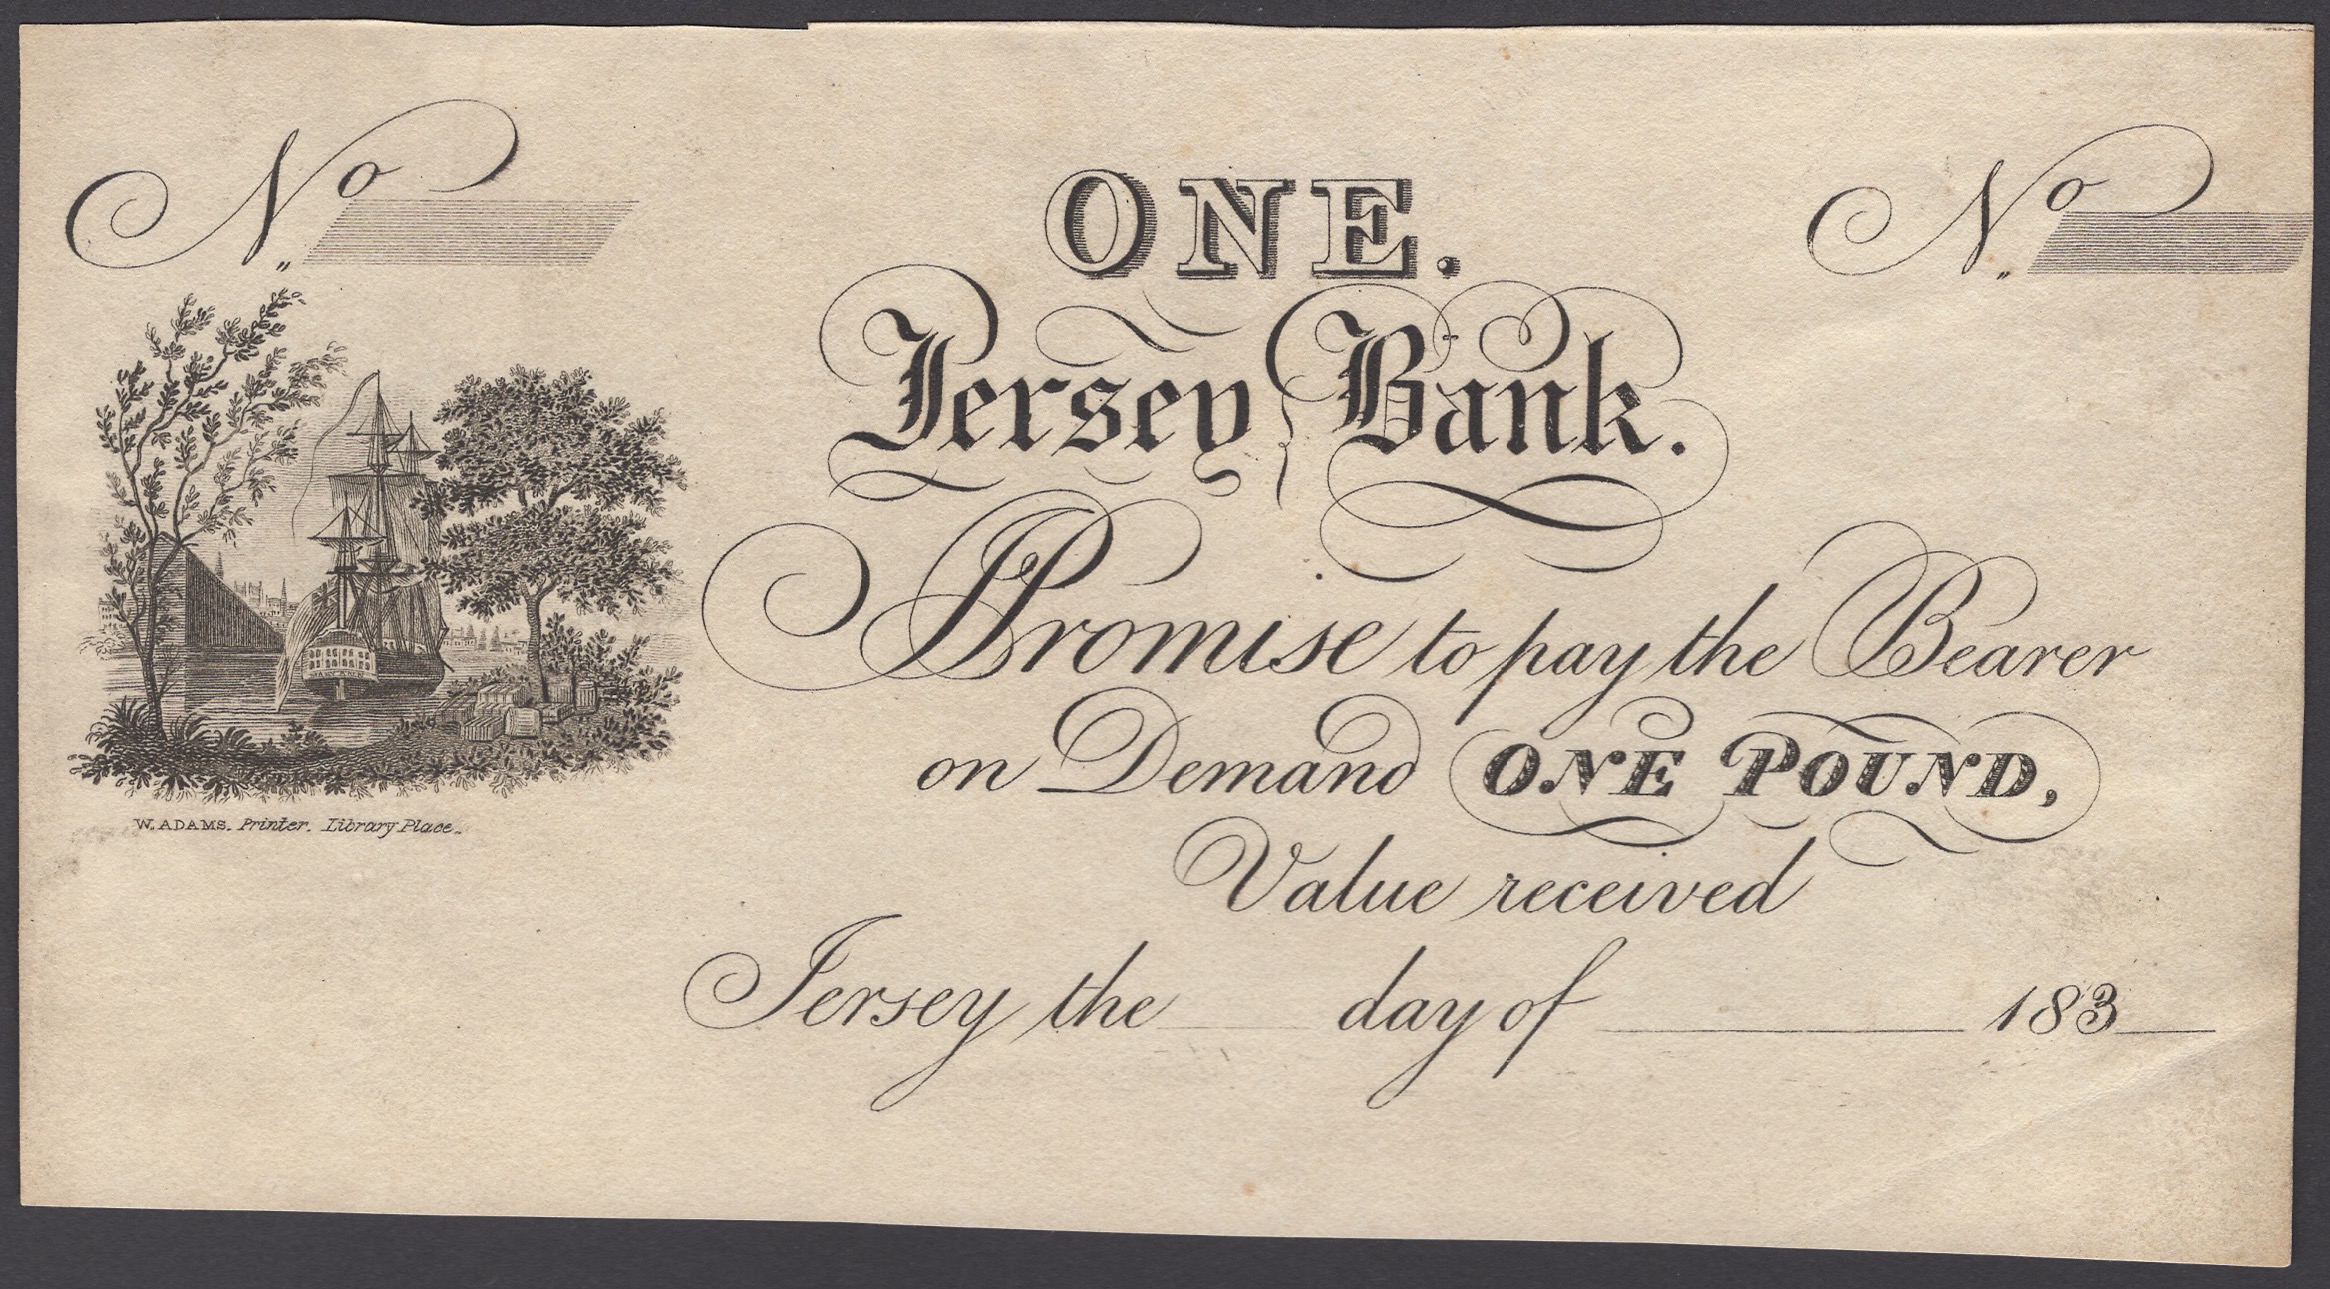 No
ONE.
No
Jersey Bank.
I Promise to pay the Bearer
on Demand ONE POUND,
Value received
Jersey the day of 183
W. ADAMS. Printer. Library Place.